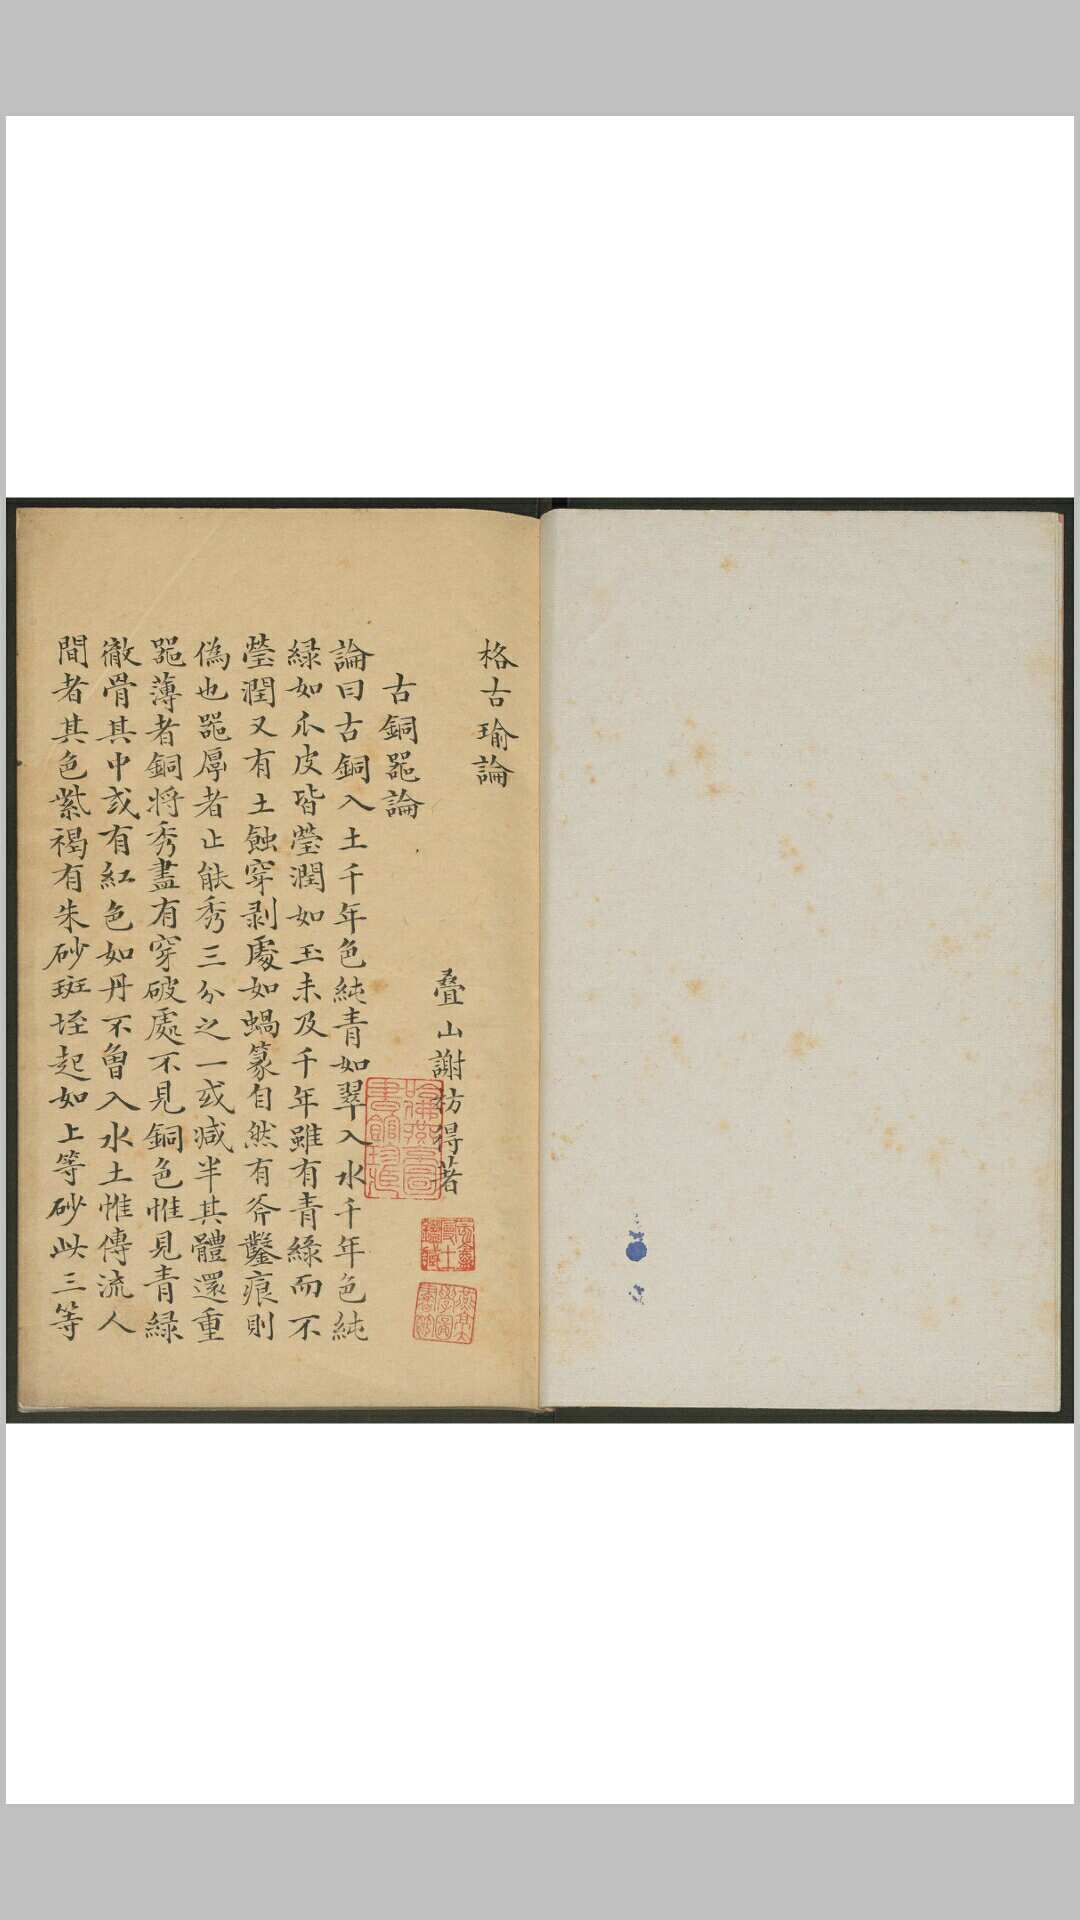 格古瑜論
疊山謝枋得著
古銅噐論
論曰古銅入土千年色純青如翠入水千年色純
緑如爪皮皆瑩潤如玉未及千年雖有青緑而不
瑩潤又有土蝕穿剥處如蝸篆自然有斧鑿痕則
偽也噐厚者止能秀三分之一或减半其體還重
噐薄者銅将秀盡有穿破處不見銅色惟見青緑
徹骨其中或有紅色如丹不曾入水土惟傳流人
間者其色紫褐有朱砂斑垤起如上等砂此三等